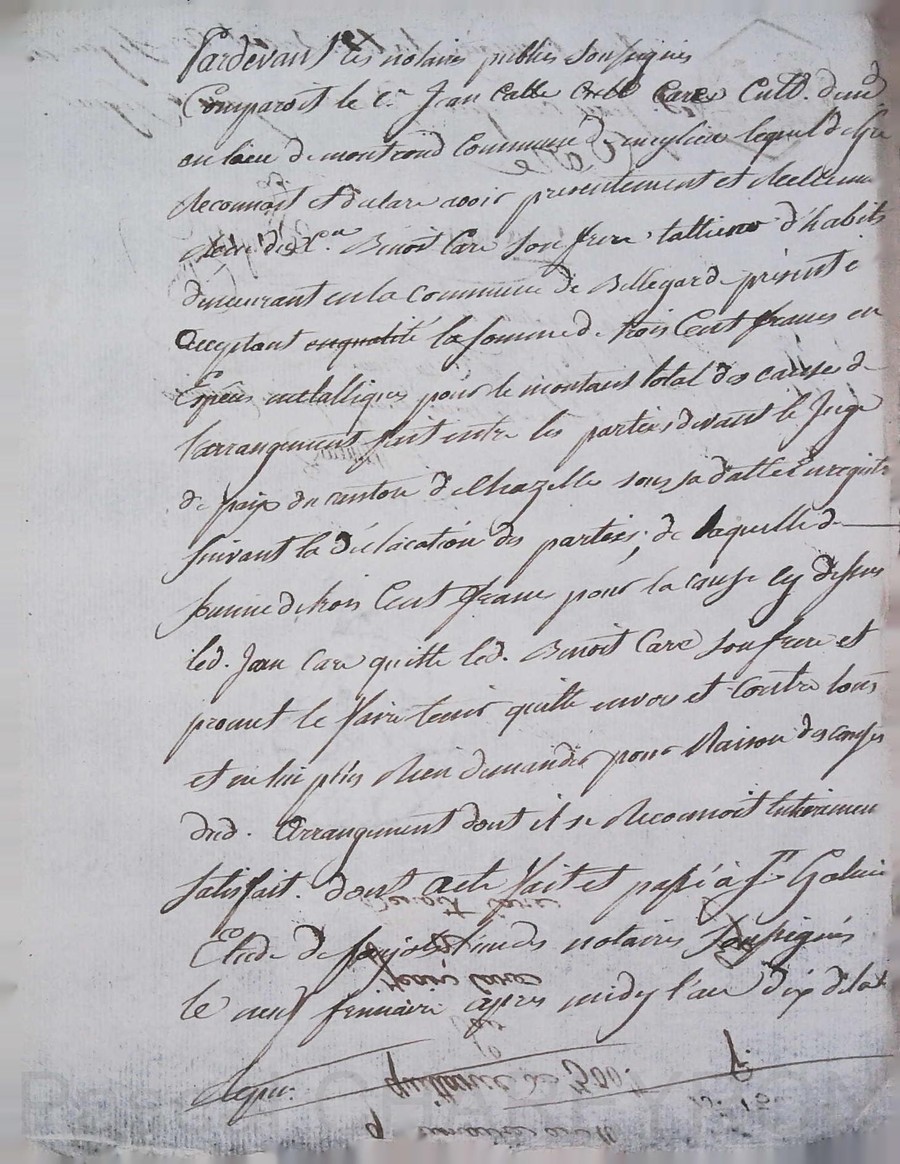 Pardevant les notaires publics Soussignés
Comparoit le C.en Jean Care Cult. dem.t
au lieu de montrond Commune de lequel de Gré
Reconnoit et declare avoir presentement et reellement
C.en Benoit Care Son frere tallieur d'habits
demeurant en la Commune de Bellegarde présent e
acceptant enqualité la Somme de trois Cent francs en
Espèces metalliques pour le montant total des causes de
l'arrangement fait entre les parties devant le Juge
de paix du canton de Chazelle sous sa datte Enregistré
Suivant la déclaration des parties, de laquelle d.
Somme de trois Cent franc pour la cause cy dessus
led. Jean Care quitte led. Benoit Care Son frere et
promet le faire tenir quitte envers et Contre tous
et ne lui plus Rien demander pour Raison des causes
dud. Arrangement dont il se Reconnoit Entierement
Satisfait. dont acte fait et passé à S.t Galmier
Etude de l'un des notaires Soussignés
le neuf frimaire apres midy l'an dix de la
Quittance de 300.